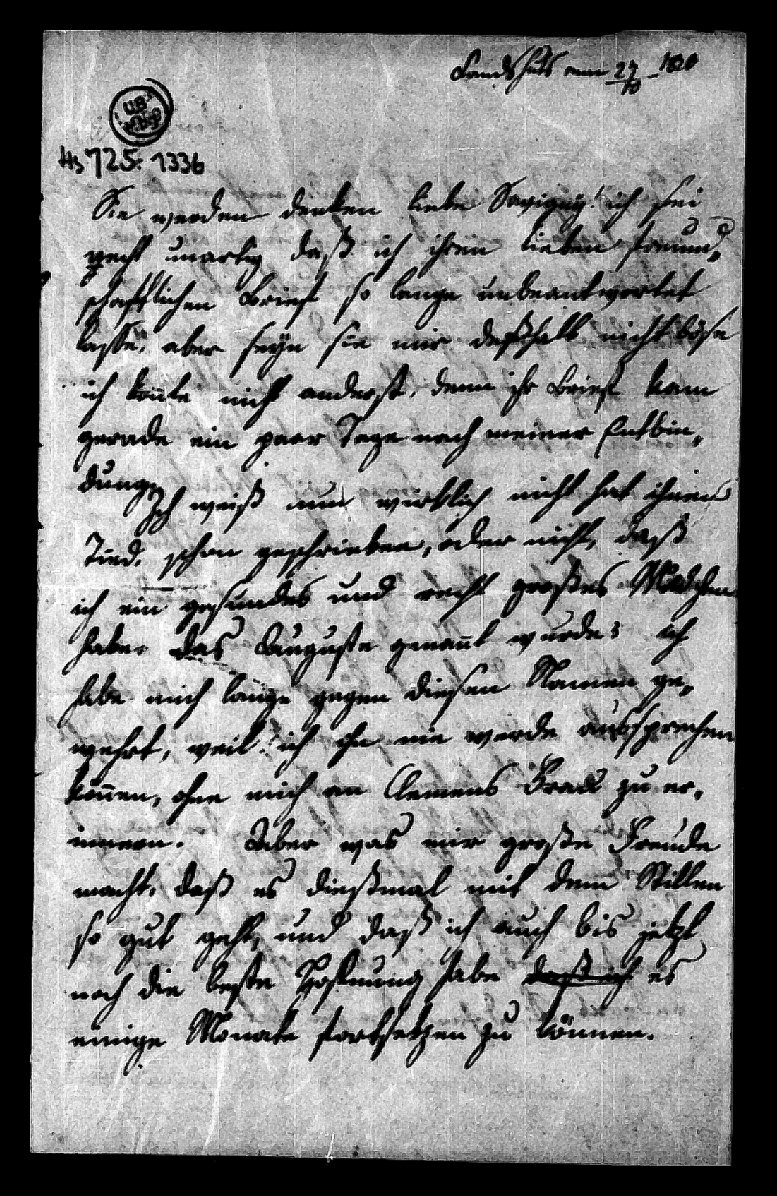 Landshut am 27/10 – 1810
UB Mbg
Hs 725: 1336
Sie werden denken liebe Savigny! ich sei
recht unartig daß ich ihren lieben freund„
schaftlichen Brief so lange unbeantwortet
lasse, aber seyn sie mir deßhalb nicht böse
ich konte nicht anderst, denn ihr Brief kam
gerade ein paar Tage nach meiner Entbin„
dung. Ich weiß nun würklich nicht hat ihnen
Tied. schon geschrieben, oder nicht, daß
ich ein gesundes und recht großes Mädchen
habe, das Auguste genant wurde: ich
habe mich lange gegen diesen Namen ge„
wehrt, weil ich ihn nie werde aussprechen
können, ohne mich an Clemens Frau zu er„
innern. Aber was mir große Freude
macht, daß es dießmal mit dem Stillen
so gut geht, und daß ich auch bis jetzt
noch die beste Hofnung habe daß ich es
einige Monate fortsetzen zu können.